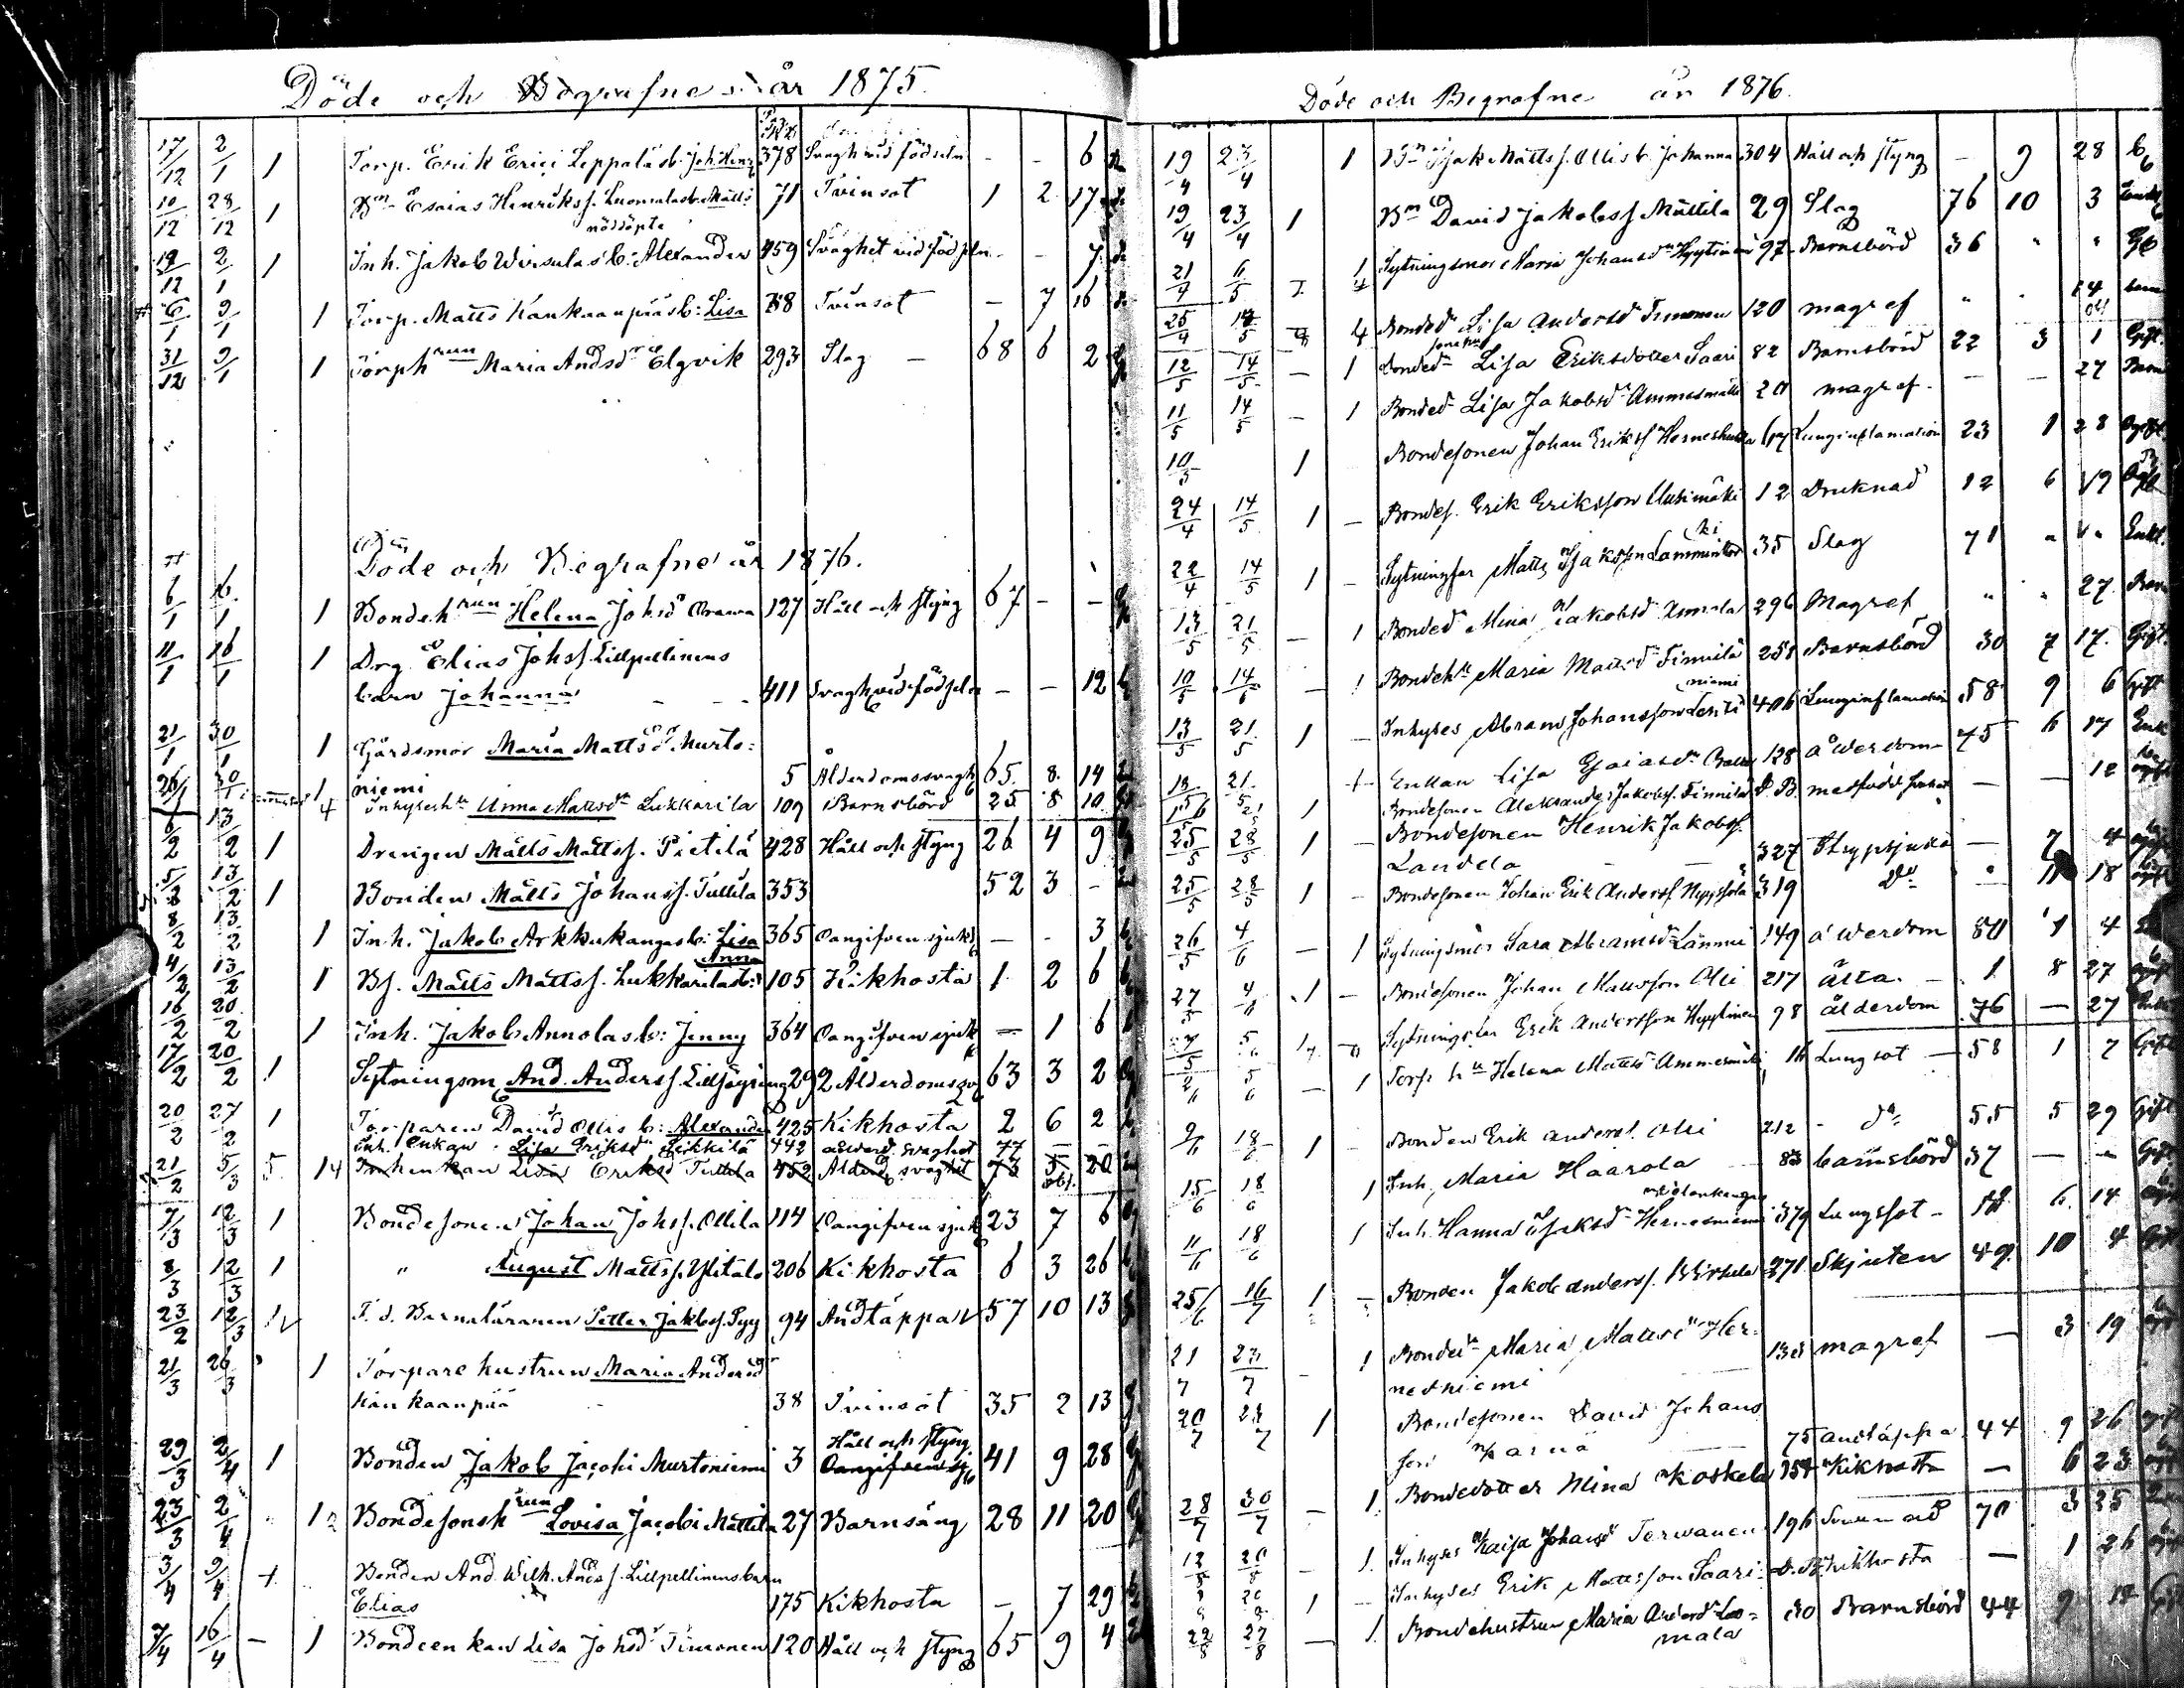 Döde och Begrafne år 1875.
17/12 2/1 1 Torp. Erik Erici Leppäläs b. Joh. Henr. 378 Svagh vid födseln - - 6
10/12 28/12 1 Bm Esaias Henrikss. Luomalas b. Matts 71 Tvinsot 1 2 17
nöddöpte
19/12 2/1 1 Inh. Jakob Wirsulas b: Alexander 459 Svaghet vid födseln - - 7
6/1 9/1 1 Torp. Matts Kankaanpääs b: Lisa 38 Tvinsot - 7 16
31/12 9/1 1 Torphrun Maria Andsdr Elgvik 293 Slag - 68 6 2
Döde och Begrafne år 1876.
6/1 16/1 1 Bondehrun Helena Johsdr Orawa 127 Håll och styng 67 - -
11/1 16/1 1 Drg. Elias Johss. Lillpellinens
barn Johanna 411 Svagh vid födseln - - 12
21/1 30/1 1 Gårdsmor Maria Mattsdr Murto=
niemi 5 Ålderdomssvagh 65 8 14
26/1 30/1 1 4 Inhyseshu Anna Mattsdr Lukkarila 109 Barnsbörd 25 8 10
6/2 13/2 1 Drengen Matts Mattss. Pietilä 428 Håll och styng 26 4 9
5/2 13/2 1 Bonden Matts Johanss. Tuttila 353 52 3 -
8/2 13/2 1 Inh. Jakob Arkkukangas b: Lisa 365 Oangifven sjukd - - 3
Anna
4/2 13/2 1 Bs. Matts Mattss. Lukkarilas b: 105 Kikhosta 1 2 6
16/2 20/2 1 Inh. Jakob Annolas b: Jenny 364 Oangifven sjukd - 1 6
17/2 20/2 1 Sytningsm And. Anderss. Lilljäyring 292 Ålderdomssv 63 3 2
20/2 27/2 1 Torparen David Ollis b: Alexander 425 Kikhosta 2 6 2
Inh. Enkan Lisa Eriksdr Heikkilä 442 ålderd. svaghet 77 - -
21/2 5/3 5 14 Inhenkan Lisa Eriksd Tuttila 452 Ålderd. svaghet 73 5 20
7/3 12/3 1 Bondesonen Johan Johss. Ollila 114 Oangifven sjukd 23 7 6
8/3 12/3 1 " August Mattss. Ylitalo 206 Kikhosta 6 3 26
23/2 12/3 1 F. d. Barnaläraren Petter Jakobs. Pyy 94 Andtäppa 57 10 13
21/3 26/3 1 Torpare hustrun Maria Andersdr
Kankaanpää 38 Tvinsot 35 2 13
29/3 2/4 1 Bonden Jakob Jacobi Murtoniemi 3 Håll och styng 41 9 28
Oangifven sj
23/3 2/4 1 Bondesonshrun Lovisa Jacobi Mattila 27 Barnsäng 28 11 20
3/4 9/4 1 Bonden And. Wilh. Andss. Lillpellinens barn
Elias 175 Kikhosta - 7 29
7/4 16/4 - 1 Bondeenkan Lisa Johsdr Timonen 120 Håll och styng 65 9 4
Döde och Begrafne år 1876.
19/4 23/4 1 Bm Isak Mattss. Ollis b. Johanna 304 Håll och styng - 9 28
19/4 23/4 1 Bm David Jakobss. Mattila 29 Slag 76 10 3
21/4 6/5 1 Sytningsmor Maria Johansdr Hyytinen 97 Barnsbörd 36 " "
25/4 14/5 4 Bonded Lisa Andersdr Timonen 120 magref " . 14
12/5 14/5 - 1 Bonded Lisa Eriksdotter Saari 82 Barnsbörd 22 3 1 Gift.
11/5 14/5 - 1 Bonded Lisa Jakobsdr Ammesmäki 20 magref - - 27 Barn
10/5 1 Bondesonen Johan Erikss Herneshuhta Lunginflamation 23 1 28 Ogift
24/4 14/5 1 - Bondes. Erik Eriksson Uusimäki 12 Druknad 12 6 19
22/4 14/5 1 - Sytningsfar Matts Isaksson Lamminkoski 35 Slag 71 " " Enkl.
13/5 21/5 - 1 Bonded Mina Jakobsd Annala 296 Magref " " 27 Barn
10/5 14/5 - 1 Bondehu Maria Mattsd Finnilä 258 Barnsbörd 30 7 17 Gift.
13/5 21/5 1 - Inhyses Abram Johansson Lentiniemi 406 Lunginflamation 58 9 6 Gift
13/5 21/5 1 Enkan Lisa Esaiasdr 128 ålderdom 45 6 17 Enk
15/5 21/5 1 Bondesonen Aleksander Jakobss. Finnilä D.B. - - 12
25/5 28/5 1 - Bondesonen Henrik Jakobss.
Landela 327 Strypsjuka - 7 4
25/5 28/5 1 - Bondesonen Johan Erik Anderss Nyyssölä 319 do - 11 18
26/5 4/6 - 1 Sytningsmor Sara Abramsdr Lammi 149 ålderdom 80 1 4
27/5 4/6 1 - Bondesonen Johan Mattsson Olli 217 älta - 1 8 27
5/6 Sytningsfar Erik Andersson Hyytinen 98 ålderdom 76 - 27
2/6 5/6 - 1 Torp hu Helena Mattsd Ammesmäki 16 Lungsot - 58 1 7 Gift
9/6 18/6 1 - Bonden Erik Anderss. Olli 212 do 55 5 29 Gift
15/6 18/6 1 Inh. Maria Haarala 83 barnsbörd 37 - - Gift
11/6 18/6 1 Inh. Hanna Isaksdr Hernesniemi 379 Lungsot - 6 14
25/6 16/7 1 - Bonden Jakob Anderss. Wirsula 271 Skjuten 49 10 4 Gift
21/7 23/7 - 1 Bonded Maria Mattsdr Her=
nesniemi 138 magref - 3 19
20/7 23/7 1 Bondesonen David Johans
son Warnä 75 andtäppa 44 9 26
28/7 30/7 - 1 Bondedotter Mina Koskela 354 Kikhosta - 6 23
12/8 20/8 - 1 Inhyses Kaisa Johansdr Terwanen 196 70 3 25
20/8 1 - Inhyses Erik Mattsson Saari D.B. kikhosta - 1 26
22/8 27/8 - 1 Bondehustrun Maria Andersd Luo=
mala 30 Barnsbörd 44 9 14